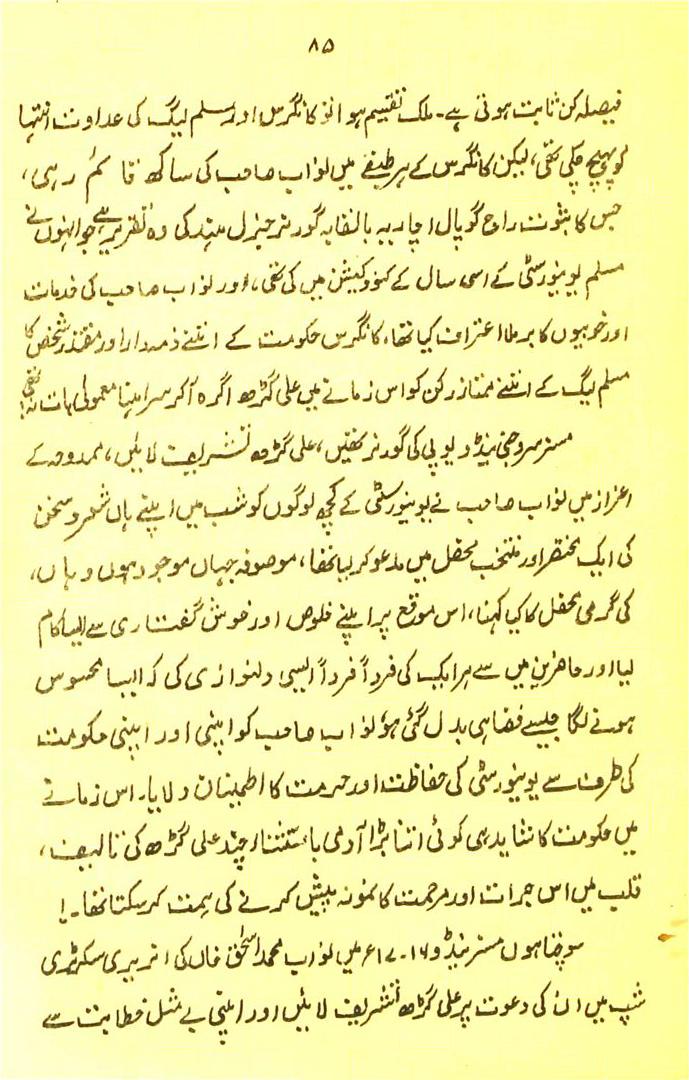 ۸۵
فیصلہ کن ثابت ہوتی ہے۔ ملک تقسیم ہوا تو کانگرس اور مسلم لیگ کی عداوت انتہا
کو پہنچ چکی تھی، لیکن کانگرس کے ہر طبقے میں نواب صاحب کی ساکھ قائم رہی،
جس کا ثبوت راج گوپال اچاریہ بالقابہ گورنر جنرل ہند کی وہ تقریر ہے جو انہوں نے
مسلم یونیورسٹی کے اسی سال کے کنووکیشن میں کی تھی، اور نواب صاحب کی خدمات
اور خوبیوں کا برملا اعتراف کیا تھا، کانگرس حکومت کے اتنے ذمہ دار اور مقتدر شخص کا
مسلم لیگ کے اتنے ممتاز رکن کو اس زمانے میں علی گڑھ آکر سراہنا معمولی بات نہ تھی!
مسز سروجنی نیڈو یوپی کی گورنر تھیں، علی گڑھ تشریف لائیں، ممدوحہ کے
اعزاز میں نواب صاحب نے یونیورسٹی کے کچھ لوگوں کو شب میں اپنے ہاں شعر و سخن
کی ایک مختصر اور منتخب محفل میں مدعو کر لیا تھا، موصوفہ جہاں موجود ہوں وہاں،
کی گرمی محفل کا کیا کہنا، اس موقع پر اپنے خلوص اور خوش گفتاری سے ایسا کام
لیا اور حاضرین میں سے ہر ایک کی فرداً فرداً ایسی دلنوازی کی کہ ایسا محسوس
ہونے لگا جیسے فضا ہی بدل گئی ہو نواب صاحب کو اپنی اور اپنی حکومت
کی طرف سے یونیورسٹی کی حفاظت اور حرمت کا اطمینان دلایا، اس زمانے
میں حکومت کا شاید ہی کوئی اتنا بڑا آدمی باستثناء چند علی گڑھ کی تالیف،
قلب میں اس جرات اور مرحمت کا نمونہ پیش کرنے کی ہمت کر سکتا تھا۔!
سوچتا ہوں مسز نیڈو ۱۶-۱۷ء میں نواب محمد اسحٰق خاں کی انریری سکرٹری
شپ میں ان کی دعوت پر علی گڑھ تشریف لائیں اور اپنی بے مثل خطابت سے